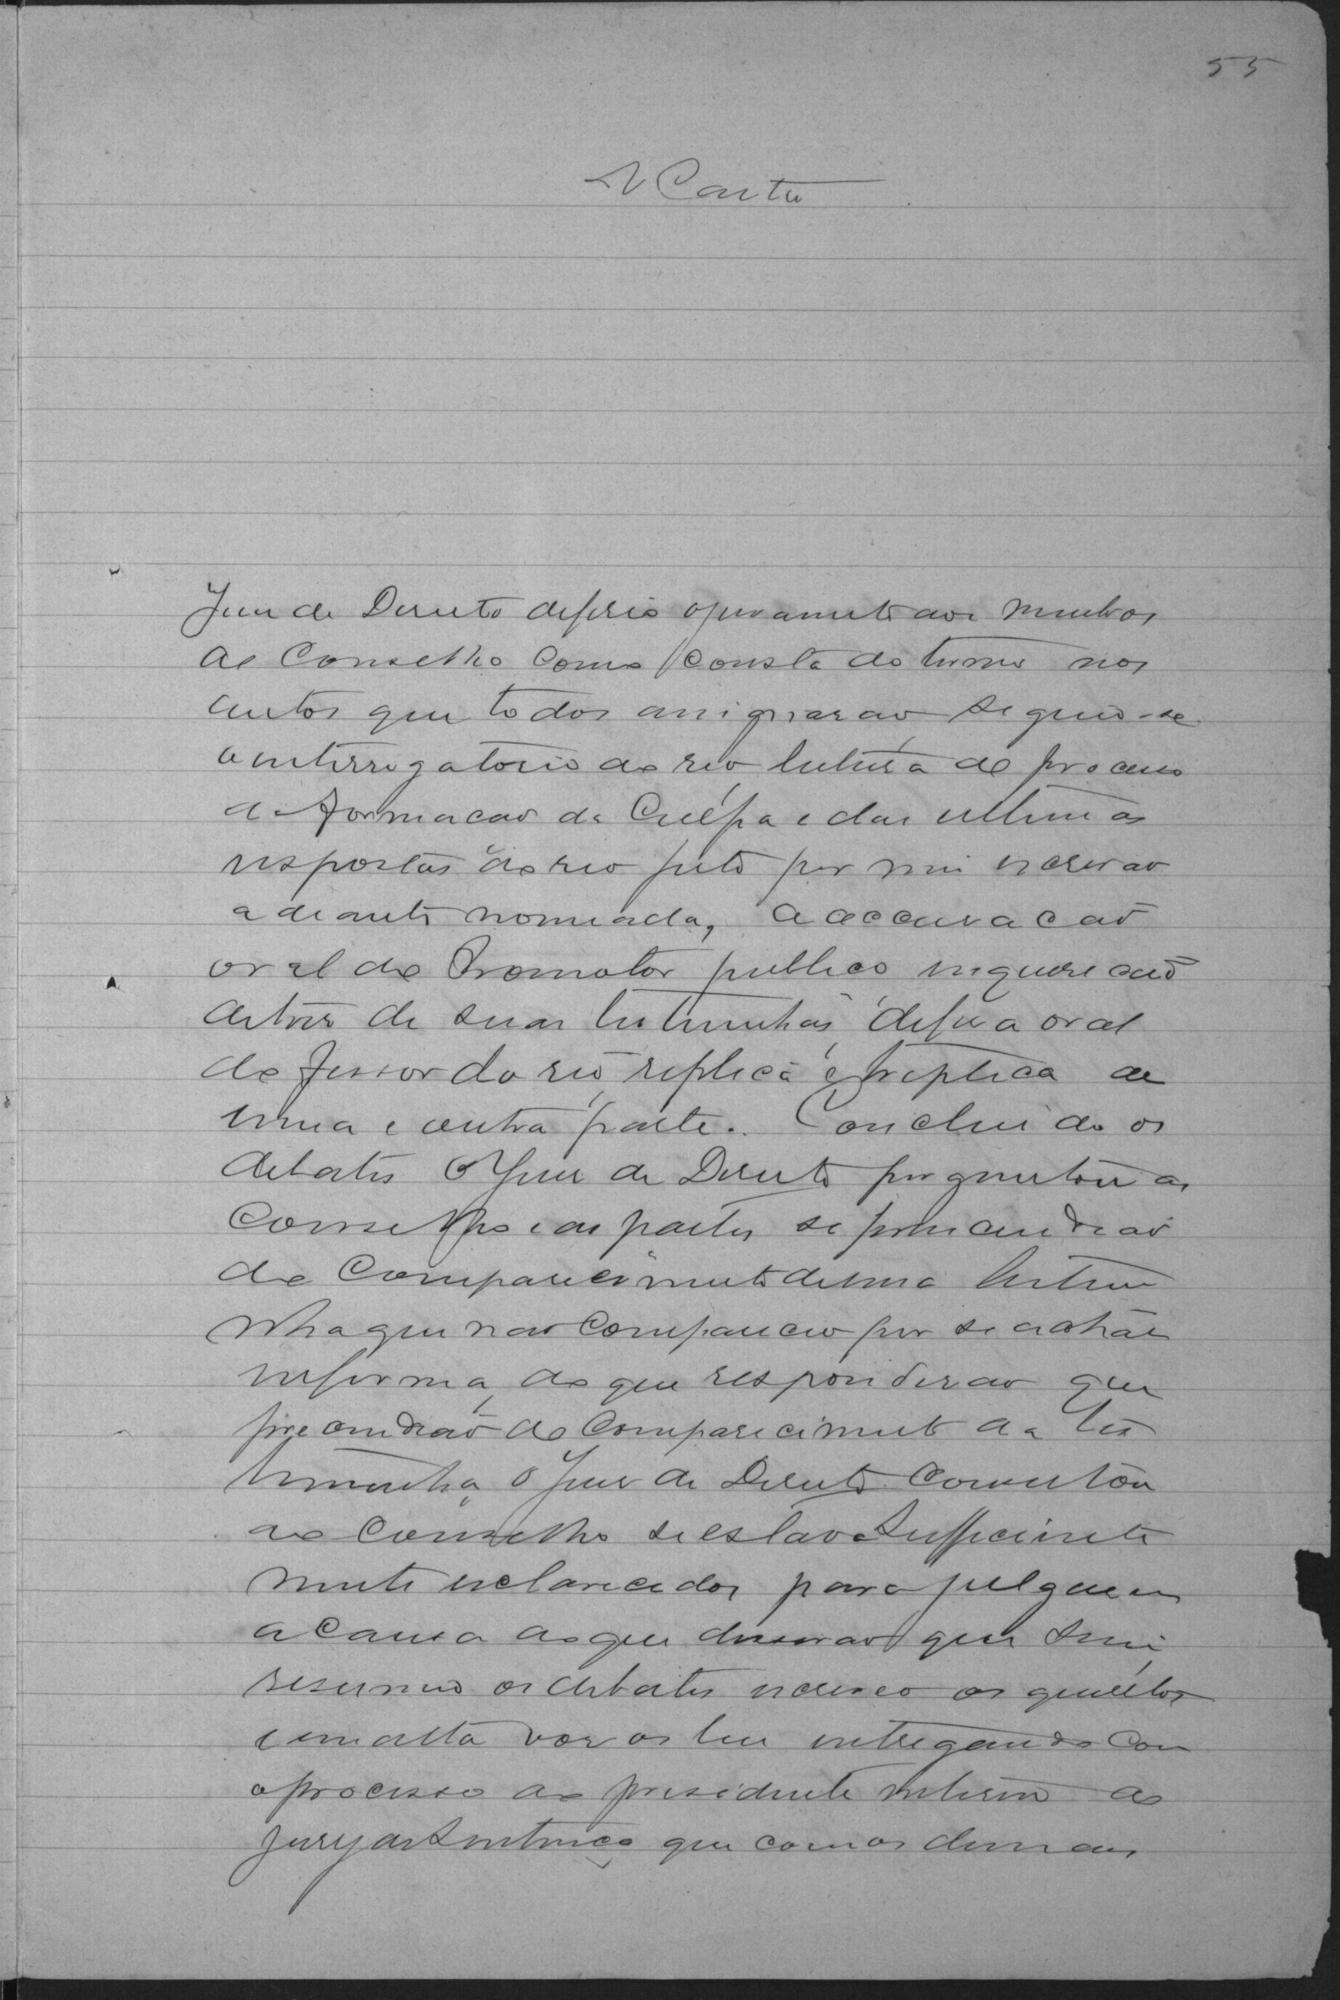 55
N Costa
Juiz de Direito deferio o juramento aos membros
do Conselho como consta do termo nos
autos que todos assignarão seguio-se
o interrogatorio do reo, leitura do processo
da formação da Culpa e das ultimas
respostas do reo feito por mim escrivão
adeante nomeado, a accusação
oral do Promotor publico inquirição
de tres de suas testemunhas, defesa oral
do fensor do reo, replica e treplica de
uma e outra parte. Concluido os
debates o Juiz de Direito perguntou ao
Conselho e as partes se prescindião
do comparecimento de uma testemu
nha que não compareceo por se achar
enferma, ao que responderão que
prescindião do comparecimento da tes
temunha, o Juiz de Direito consultou
ao Conselho se estava sufficiente
mente esclarecidos para julgarem
a Causa ao que disserão que sim,
resumio os debates escreveo os quesitos
e em alta voz os leu entregando com
o processo ao presidente interino do
Jury de Sentença que com os demais